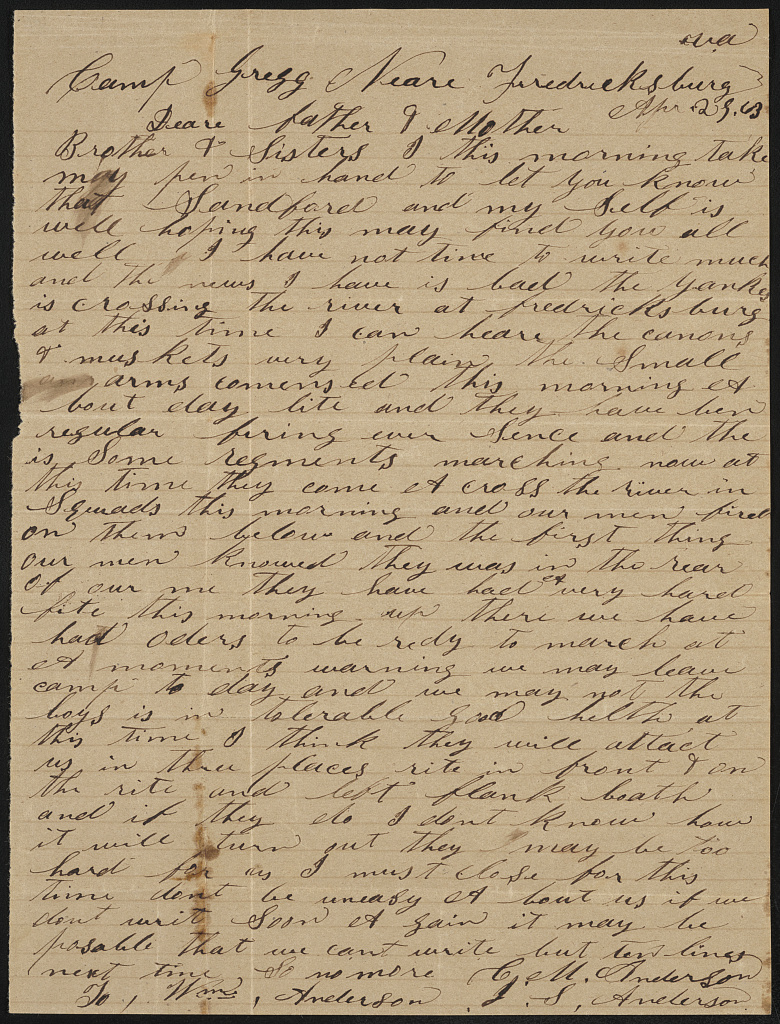 va
Camp Gregg Neare Fredricksburg
Apr. 29. 63
Deare father & Mother
Brother & Sisters I this morning take
may pen in hand to let you know
that Sandford and my Self is
well hoping this may find you all
well I have not time to write much
and the news I have is bad the yankes
is crossing the river at fredricksburg
at this time I can heare the canons
& muskets very plain the Small
arms comensed this morning A
bout day lite and they have ben
regular firing ever Sence and the
is Some regments marching now at
this time they come A cross the river in
Squads this morning and our men fired
on them below and the first thing
our men knowed they was in the rear
of our me they have had A very hard
fite this morning up there we have
had Oders to be redy to march at
A moments warning we may leave
camp to day and we may not the
boys is in tolerable good helth at
this time I think they will attact
us in three places rite in front & on
the rite and left flank boath
and if they do I dont know how
it will turn out they may be too
hard for us I must close for this
time dont be uneasy A bout us if we
dont writ Soon A gain it may be
posable that we cant write but ten lines
next time So no more C. M. Anderson
To, Wm, Anderson J. S, Anderson